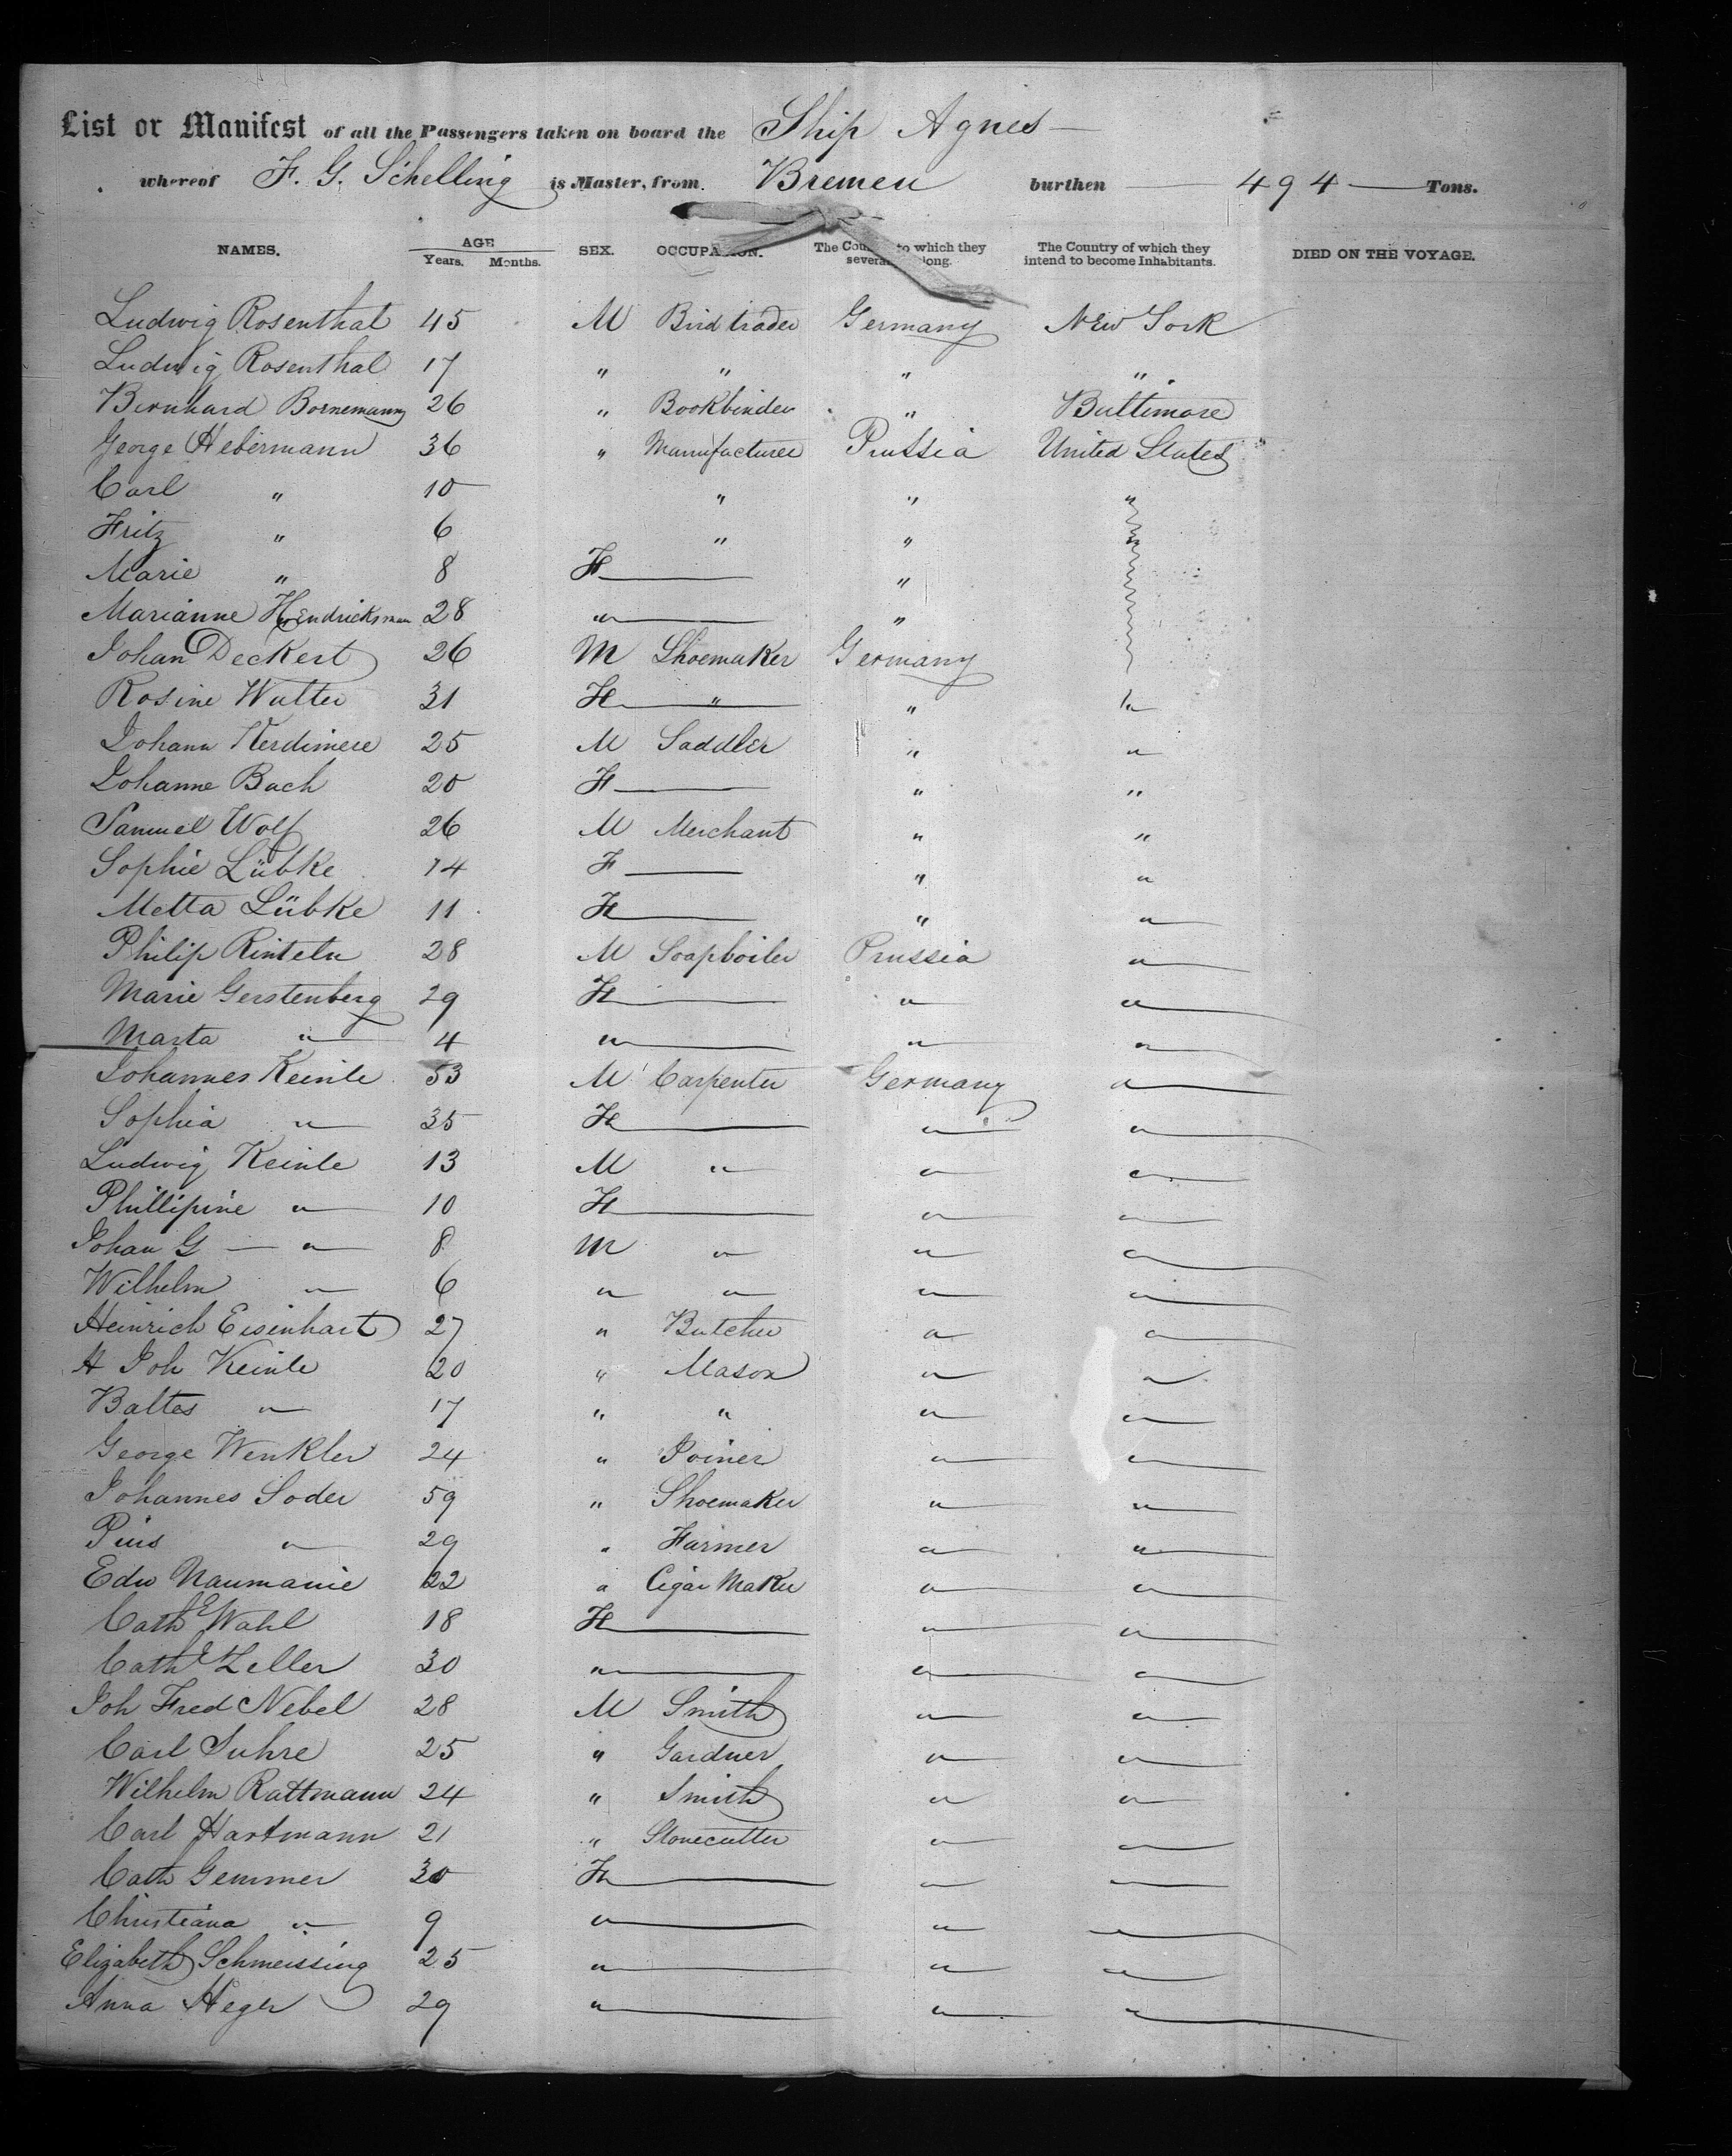 List or Manifest of all the Passengers taken on board the Ship Agnes
whereof F. G. Schelling is Master, from Bremen burthen 494 Tons.
NAMES. AGE Years. Months. SEX. OCCUPATION. The Country to which they severally belong. The Country of which they intend to become Inhabitants. DIED ON THE VOYAGE.
Ludwig Rosenthal 45 M Bird trader Germany New York
Ludwig Rosenthal 17 " " " "
Bernhard Bornemann 26 " Bookbinder " Baltimore
George Hebermann 36 " Manufacturer Prussia United States
Carl " 10 " " "
Fritz " 6 " " "
Marie " 8 F "
Marianne Hendricksman 28 " "
Johan Deckert 26 M Shoemaker Germany
Rosine Watter 31 F " " "
Johann Kerdimere 25 M Saddler " "
Johanne Bach 20 F " "
Samuel Wolf 26 M Merchant " "
Sophie Lübke 14 F " "
Metta Lübke 11 F " "
Philip Rinteln 28 M Soapboiler Prussia "
Marie Gerstenberg 29 F " "
Marta " 4 " " "
Johannes Keinle 53 M Carpenter Germany "
Sophia " 35 F " "
Ludwig Keinle 13 M " " "
Phillipine " 10 F " "
Johan G " 8 M " " "
Wilhelm " 6 " " " "
Heinrich Eisenhart 27 " Butcher " "
H Joh Keinle 20 " Mason " "
Baltes " 17 " " " "
George Wenkler 24 " Joiner " "
Johannes Soder 59 " Shoemaker " "
Pius " 29 " Farmer " "
Edw Naumanie 22 " Cigar Maker " "
Cath E Wahl 18 F " "
Cath Zeller 30 " " "
Joh Fred Nebel 28 M Smith " "
Carl Suhre 25 " Gardner " "
Wilhelm Rattmann 24 " Smith " "
Carl Hartmann 21 " Stonecutter " "
Cath Gemmer 30 F " "
Christiana " 9 " " "
Elizabeth Schmeissing 25 " " "
Anna Heger 29 " " "